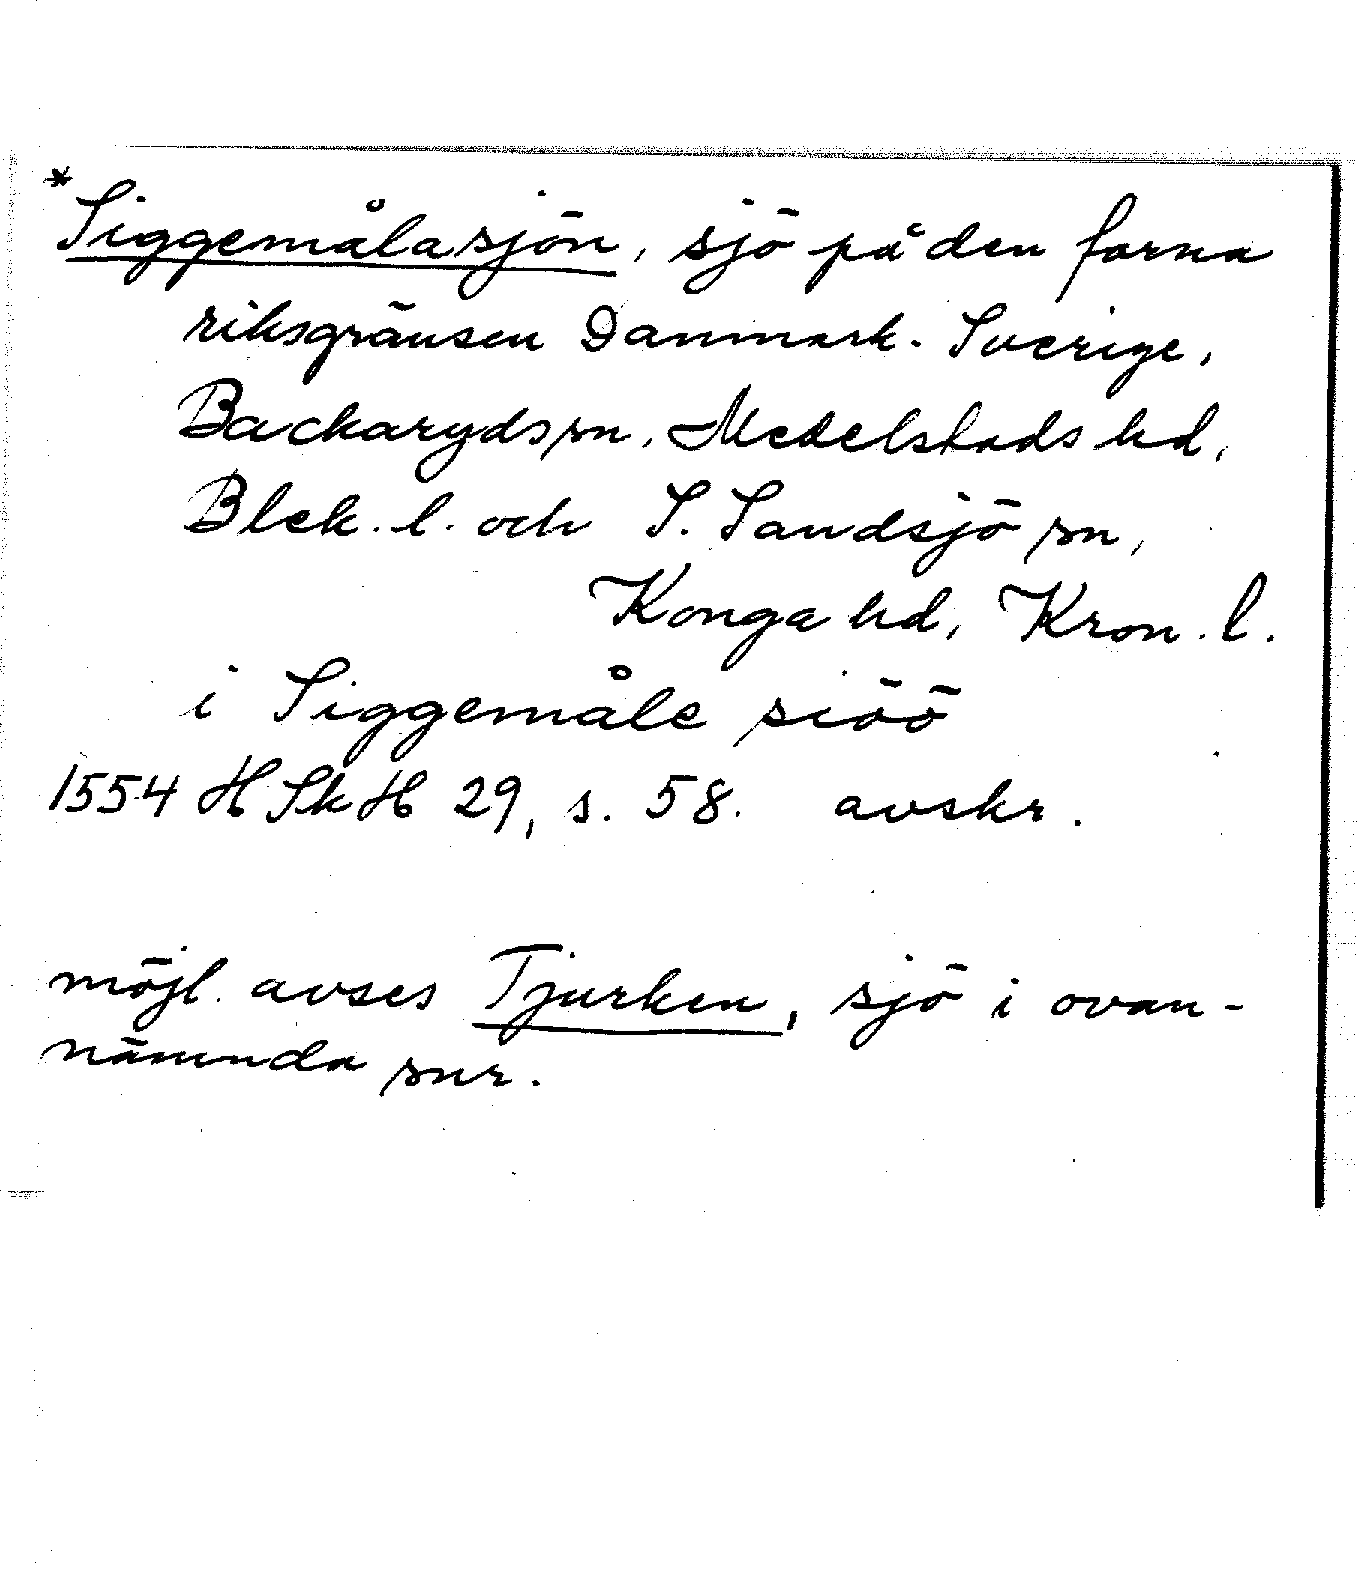 *Siggemålasjön, sjö på den forna
riksgränsen Danmark - Sverige,
Backaryds sn, Medelstads hd,
Blek. l. och S. Sandsjö sn,
Konga hd, Kron. l.
i Siggemåle siöö
1554 HSkH 29, s. 58. avskr.
möjl. avses Tjurken, sjö i ovan-
nämnda snr.